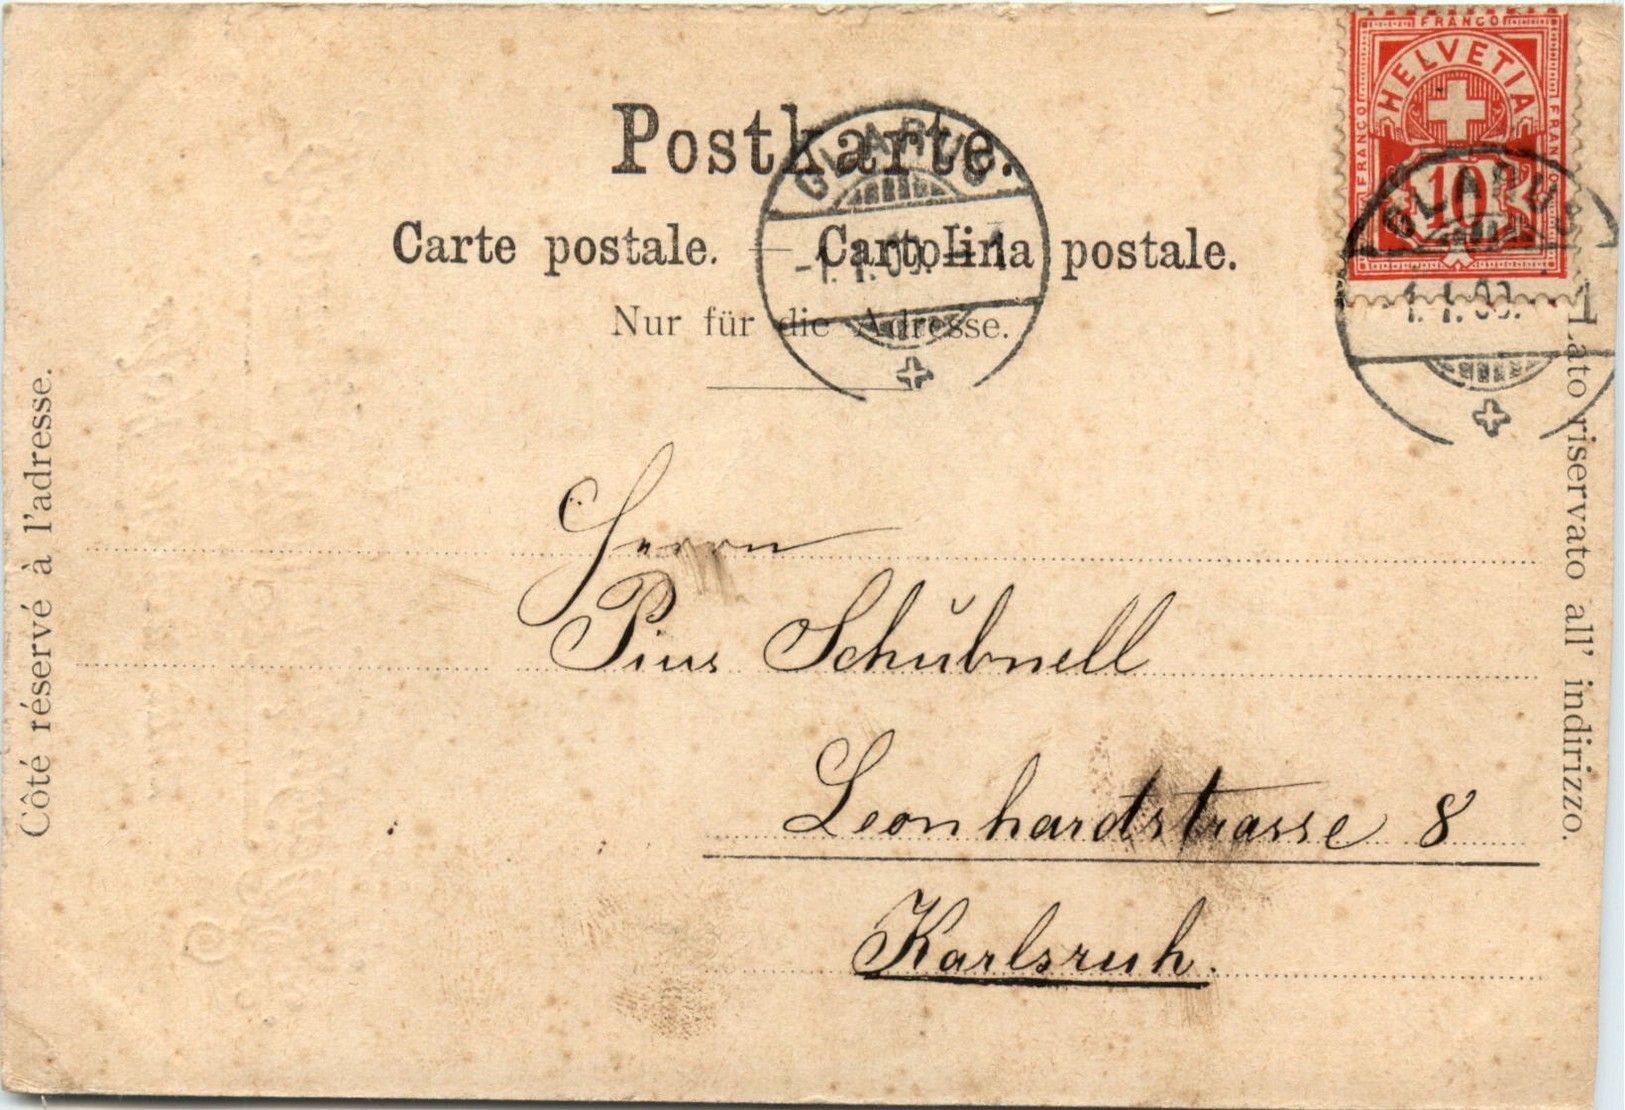 FRANCO
HELVETIA
FRANCO
FRANCO
10
Postkarte.
GLARUS
GLARUS
Carte postale. — Cartolina postale.
Nur für die Adresse.
Côté réservé à l'adresse.
Lato riservato all' indirizzo.
Herrn
Pius Schŭbnell
Leonhardstrasse 8
Karlsruh.